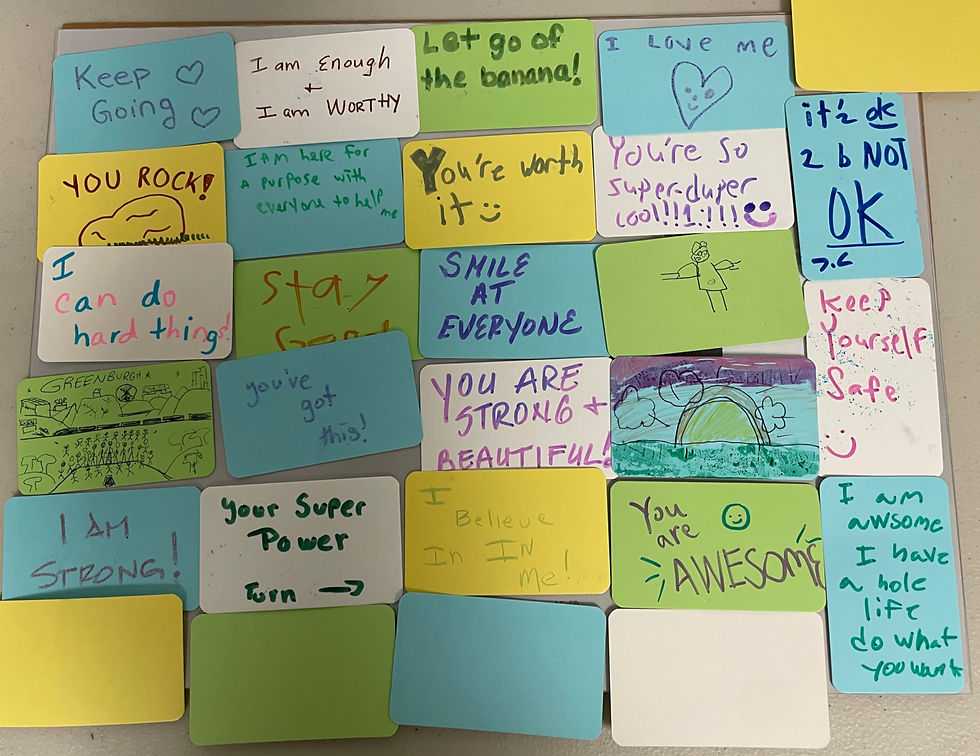 Keep
Going
I am Enough
+
I am WORTHY
Let go of
the banana!
I LOVE me
it's ok
2 b NOT
OK
YOU ROCK!
I Am here for
a purpose with
everyone to help
me
You're worth
it
You're so
super-duper
cool!!!1!!!!
I
can do
hard things!
Stay
SMILE
AT
EVERYONE
Keep
Yourself
Safe
GREENBURGH
you've
got
this!
YOU ARE
STRONG +
BEAUTIFUL!
I AM
STRONG!
your Super
Power
Turn →
I
Believe
In IN
me!
You
are
AWESOME
I am
awsome
I have
a hole
life
do what
you want